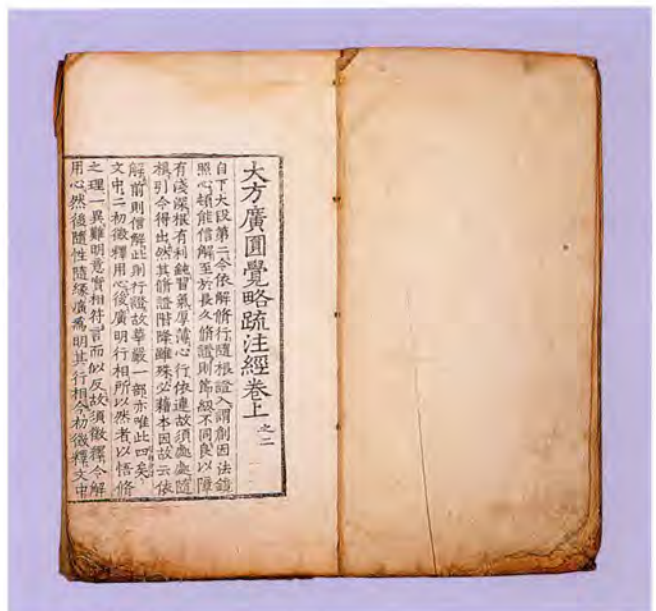 大方廣圓覺略疏注經卷上之二
自下大段第二令依解脩行隨根證入謂創因法鏡
照心頓能信解至於長久脩證則節級不同良以障
有淺深根有利鈍習氣厚薄心行依違故須處處隨
根引令得出然其脩證階降雖殊必藉本因故云依
解前則信解此則行證故華嚴一部亦唯此四矣
文中二初徵釋用心後廣明行相所以然者以悟脩
之理一異難明意實相符言而似反故須徵釋令解
用心然後隨性隨緣廣爲明其行相今初徵釋文中